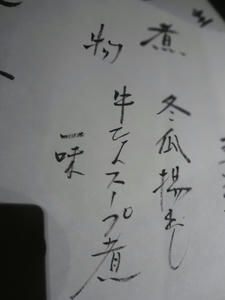 煮物
冬瓜揚出し
牛スープ煮
一味